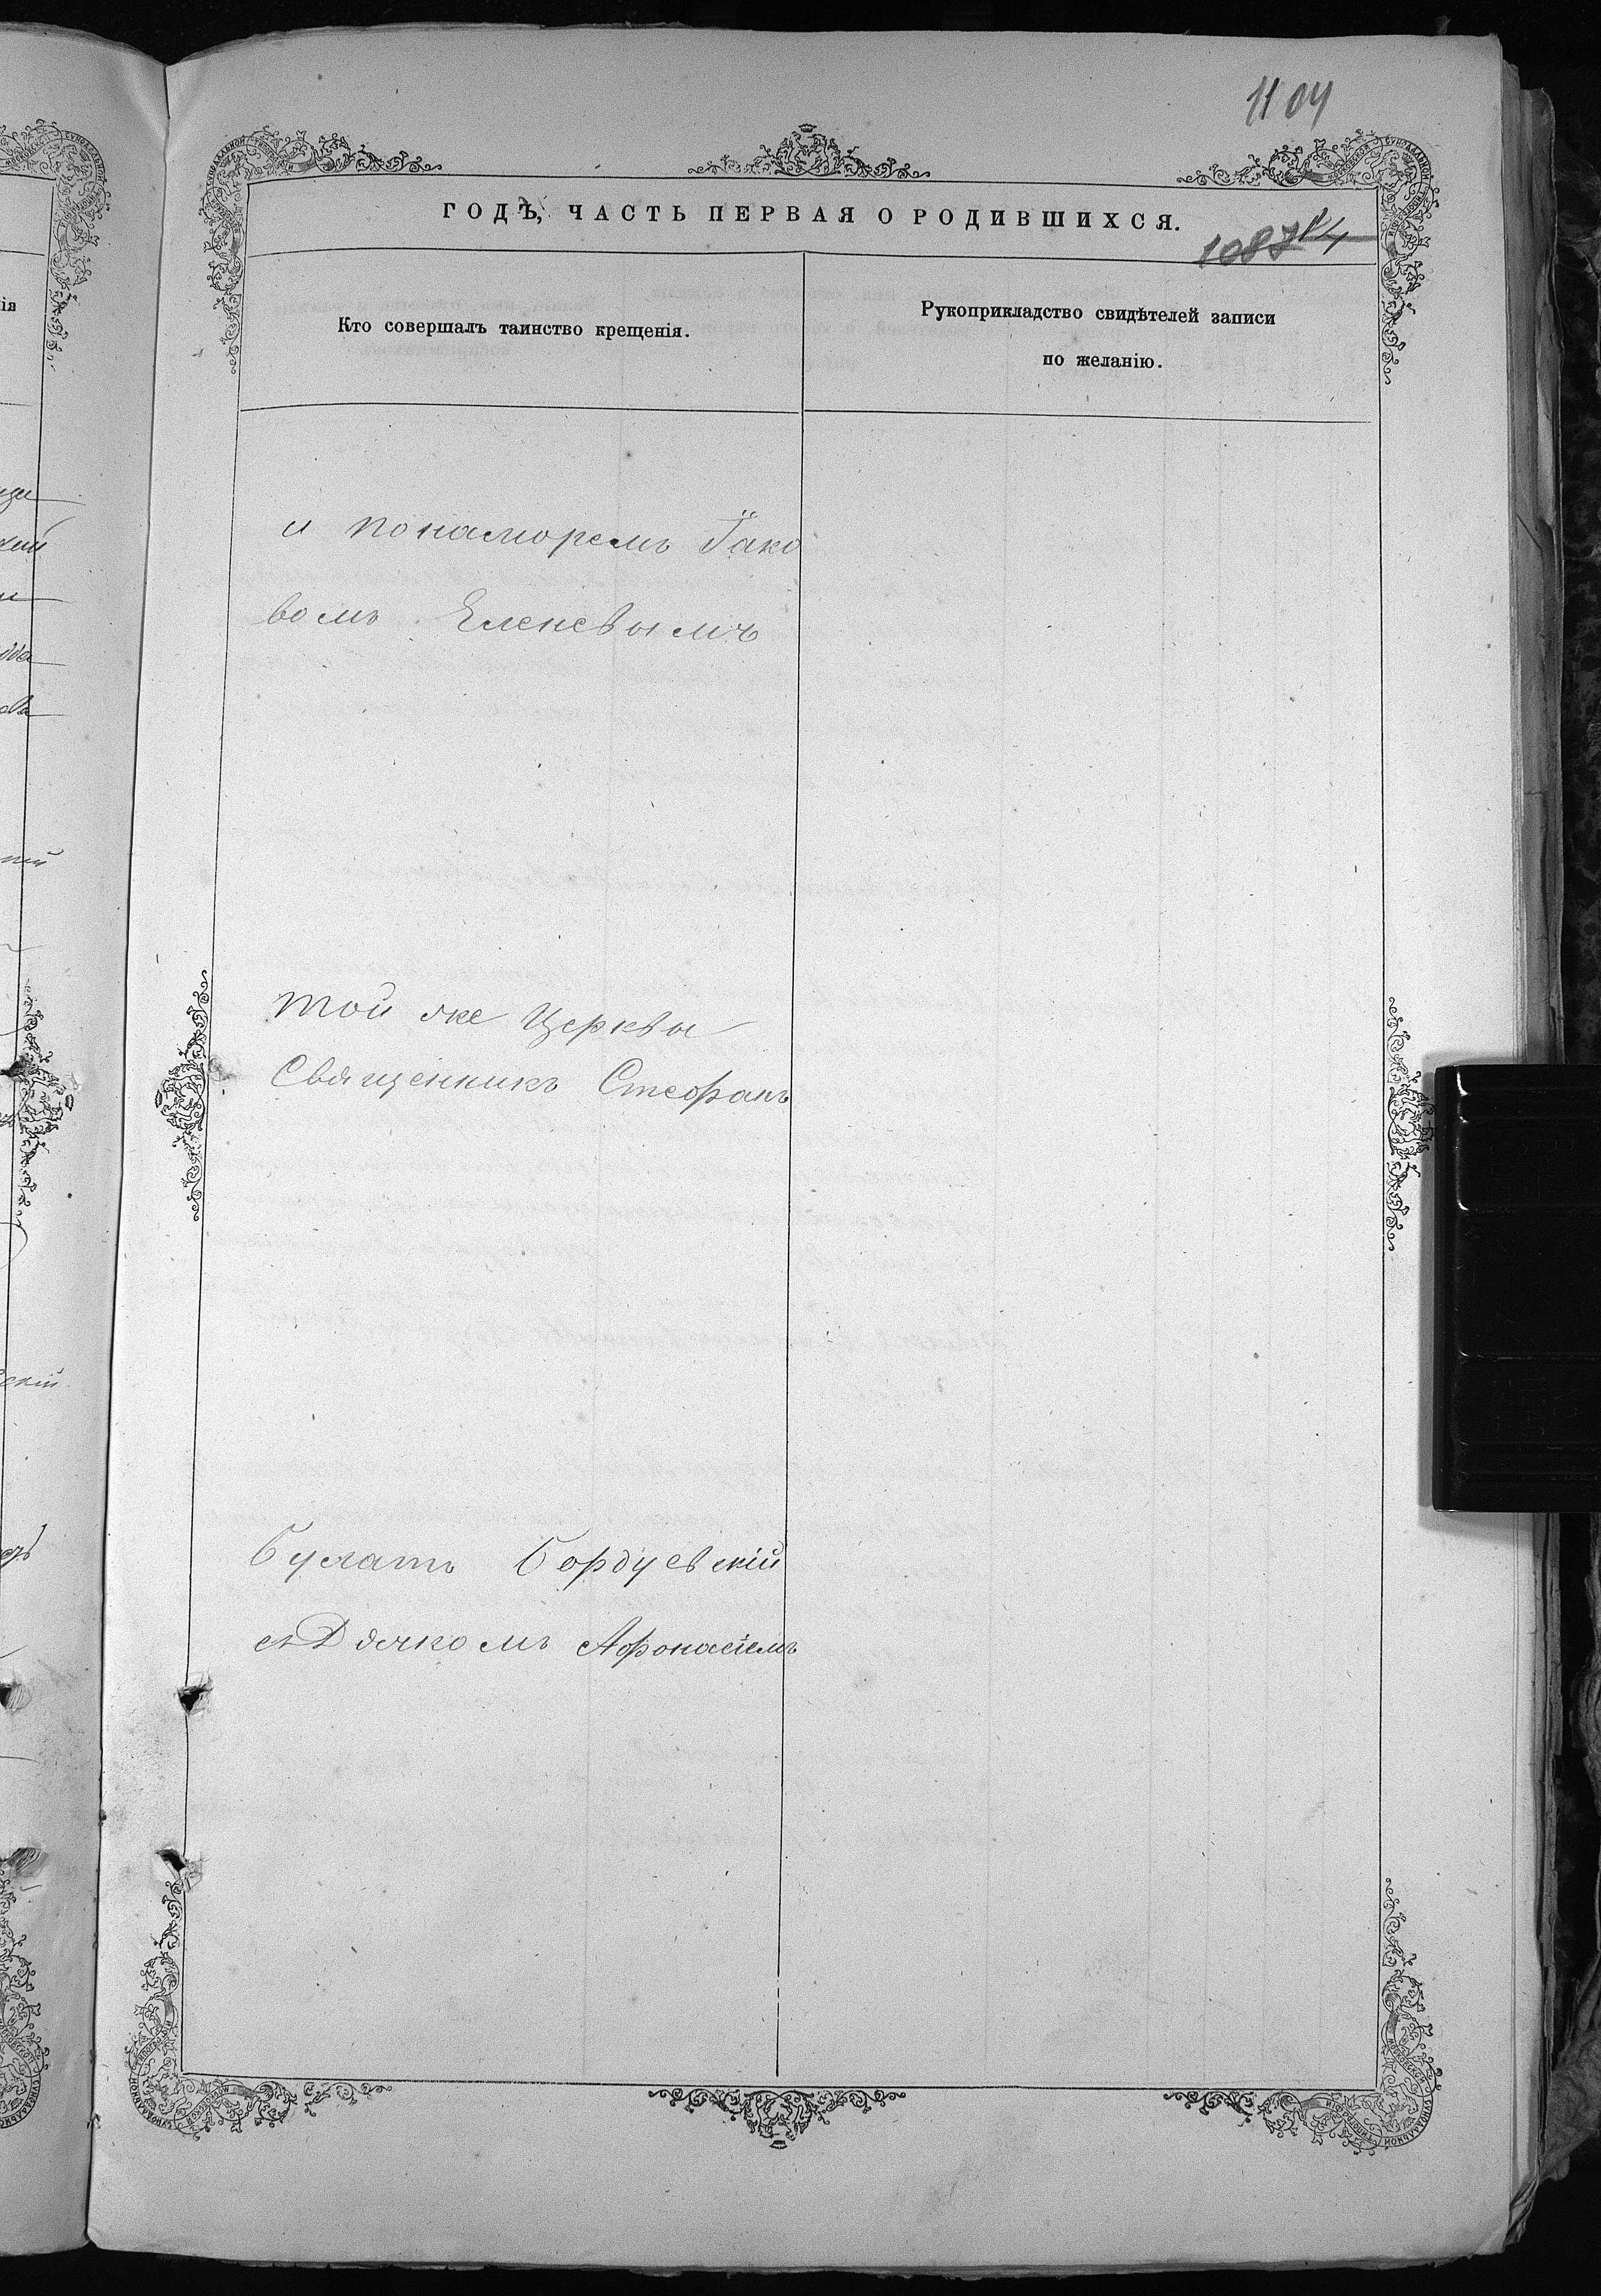 1104
ГОДЪ, ЧАСТЬ ПЕРВАЯ О РОДИВШИХСЯ.
1087
Кто совершалъ таинство крещенія.
Рукоприкладство свидѣтелей записи
по желанію.
и понаморемъ Іако
вомъ Еленевымъ
той же Церквы
Священникъ Стефанъ
Булатъ Бордуевскій
съ Дячкомъ Афонасіемъ